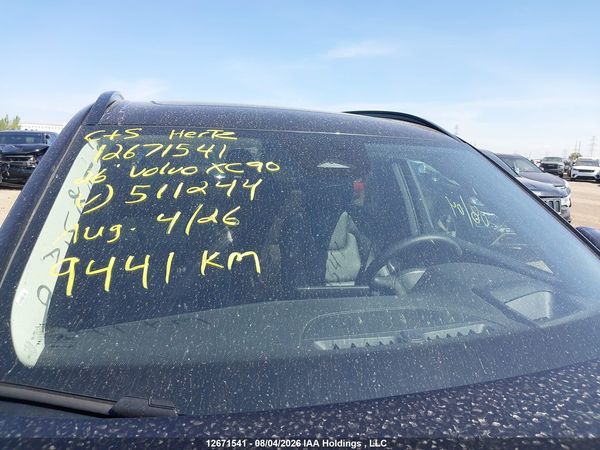 C+S Hertz
12671541
26' Volvo XC90
V) 511244
Aug. 4/26
9441 KM
12671541 - 08/04/2026 IAA Holdings , LLC